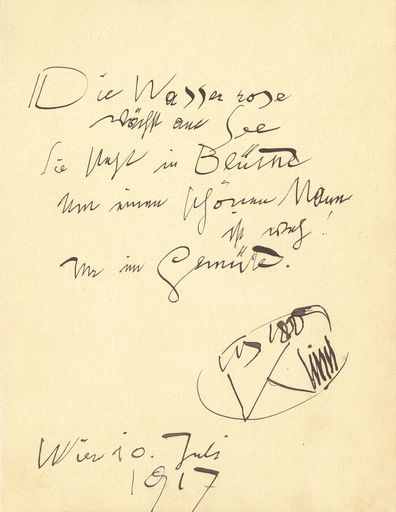 Die Wasserrose
wächst am See
Sie steht in Blüthe
Um einen schönen Mann
ist weh!
Ihr im Gemüte.
Wien 10. Juli
1917